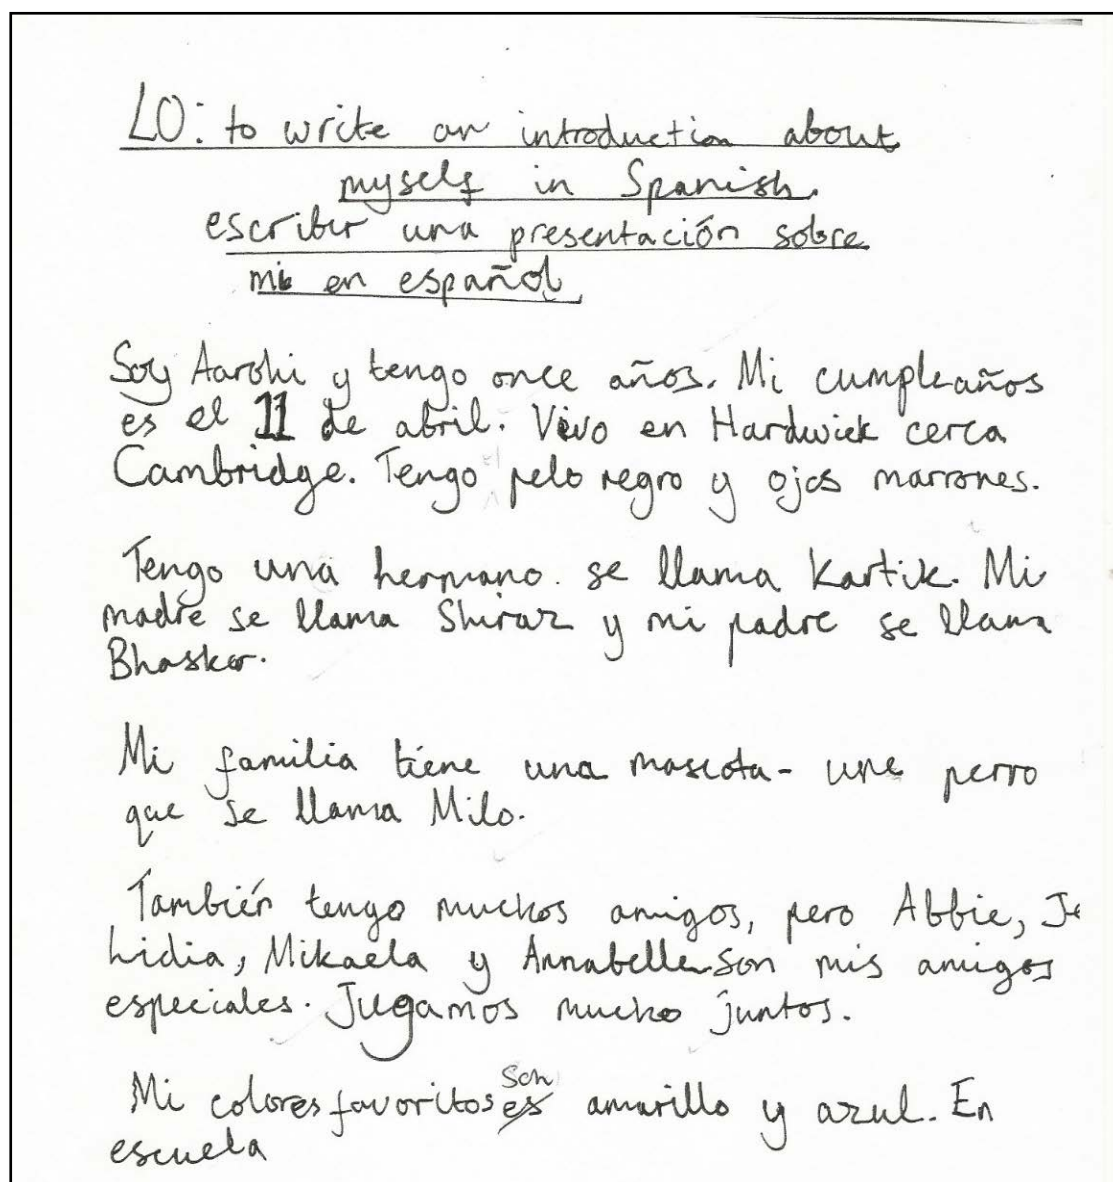 LO: to write an introduction about
myself in Spanish.
escribir una presentación sobre
mi en español
Soy Aarohi y tengo once años. Mi cumpleaños
es el 11 de abril. Vivo en Hardwick cerca
Cambridge. Tengo el pelo negro y ojos marrones.
Tengo una hermano. se llama Kartik. Mi
madre se llama Shiraz y mi padre se llama
Bhasker.
Mi familia tiene una mascota - une perro
que se llama Milo.
También tengo muchos amigos, pero Abbie, Je
Lidia, Mikaela y Annabelle son mis amigos
especiales. Jugamos mucho juntos.
Mi colores favoritos es son amarillo y azul. En
escuela